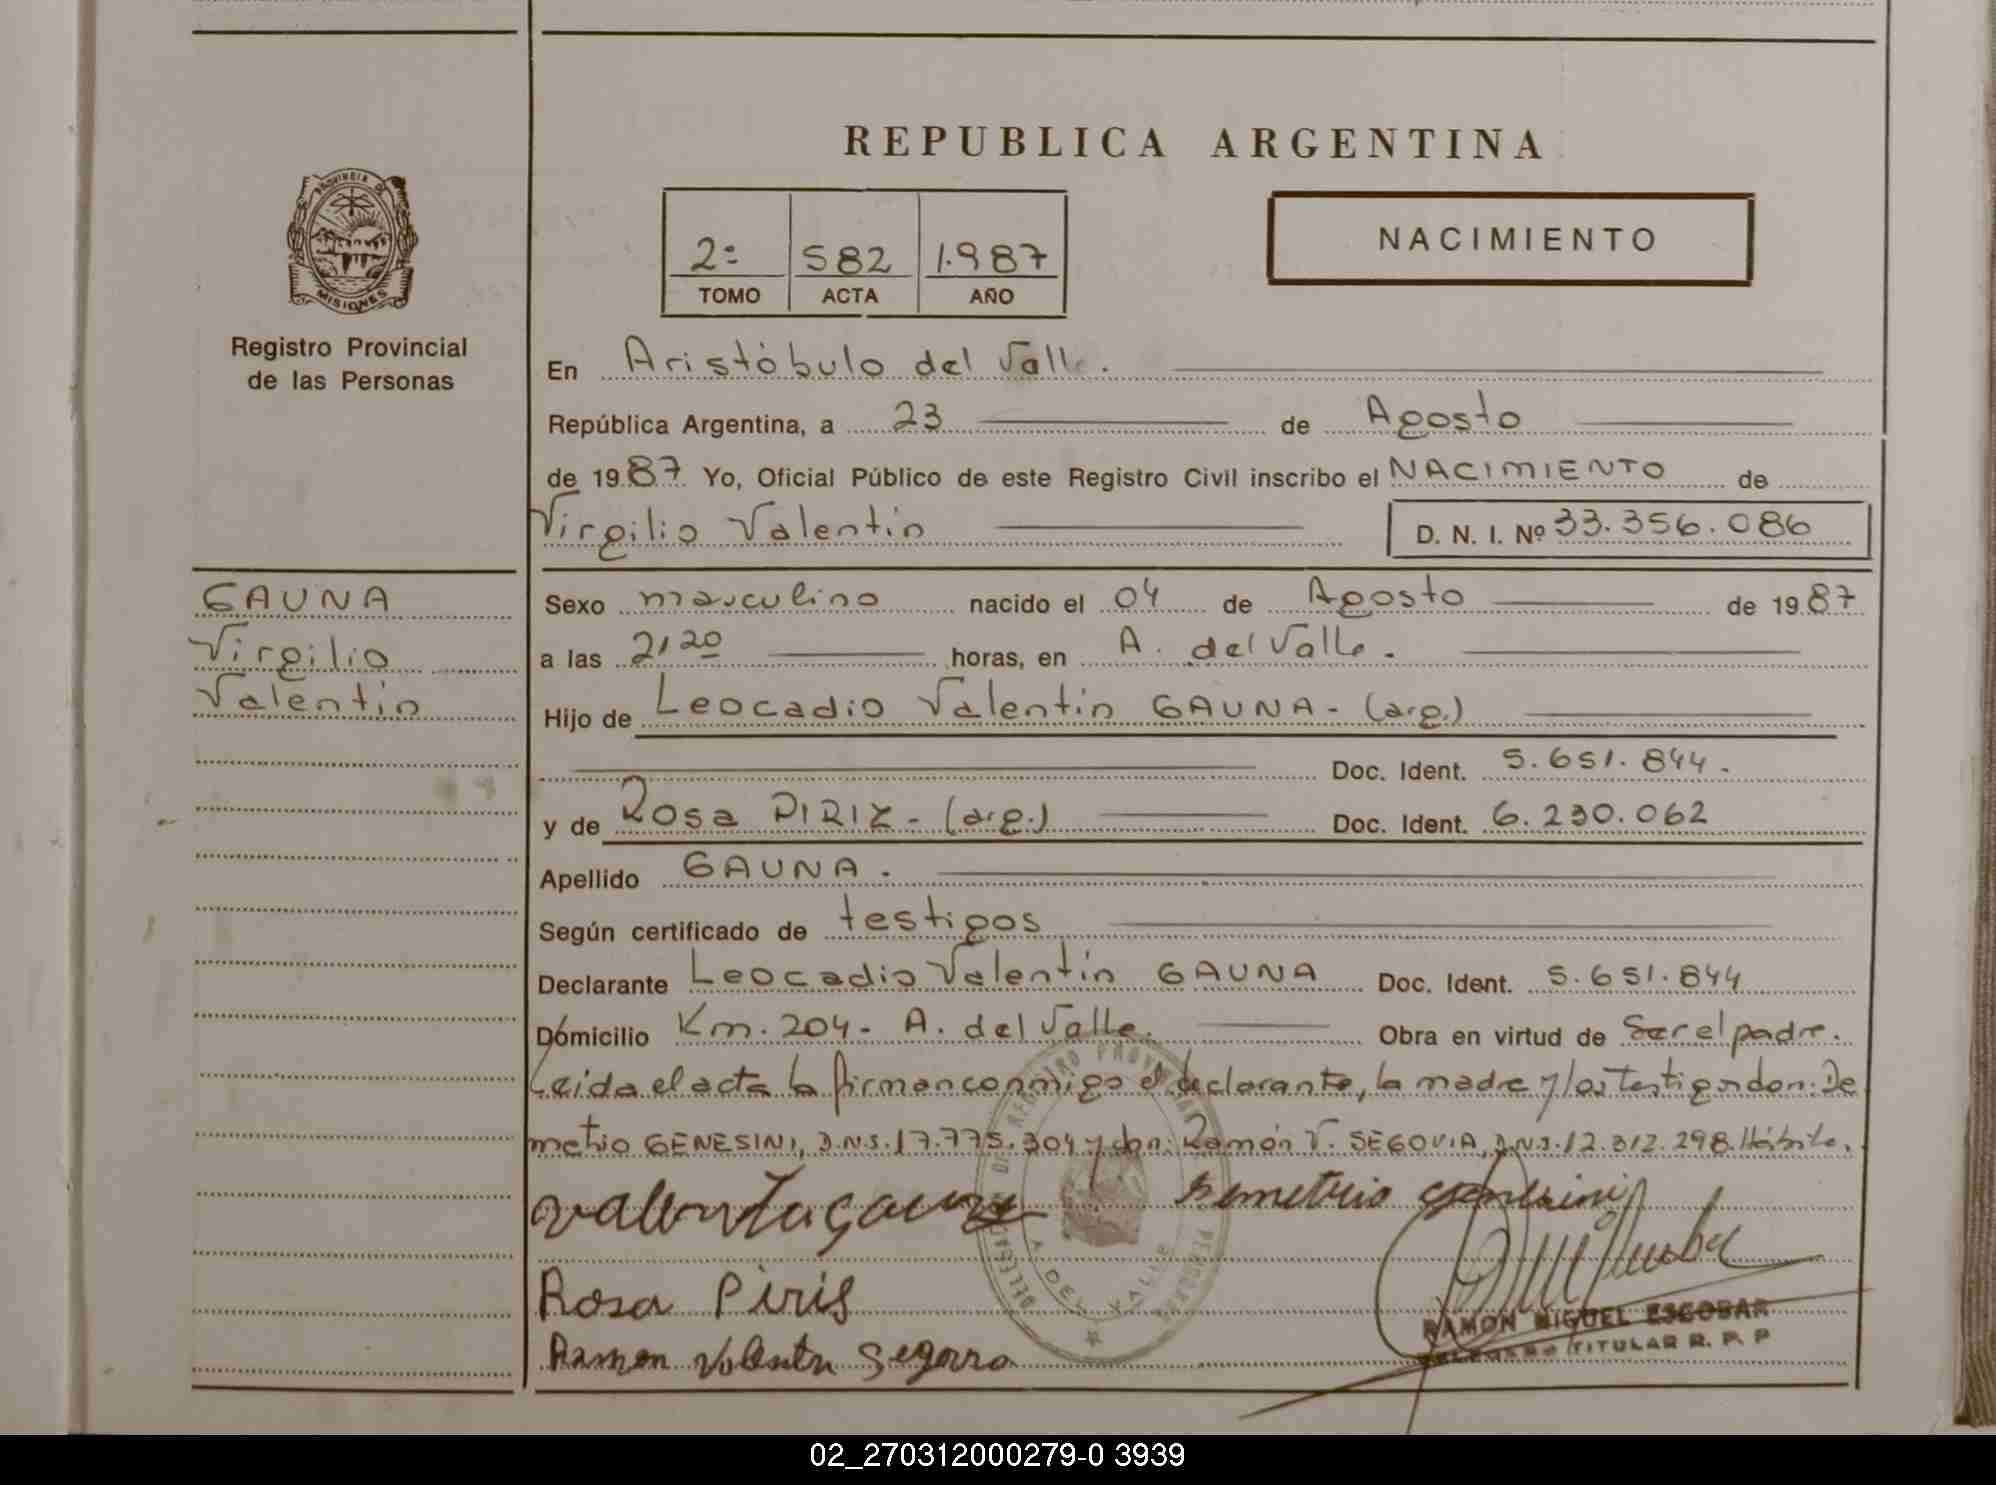 REPUBLICA ARGENTINA
PROVINCIA DE
MISIONES
Registro Provincial
de las Personas
2º 582 1.987
TOMO ACTA AÑO
NACIMIENTO
En Aristóbulo del Valle.
República Argentina, a 23 de Agosto
de 1987 Yo, Oficial Público de este Registro Civil inscribo el NACIMIENTO de
Virgilio Valentín D. N. I. Nº 33.356.086
GAUNA
Virgilio
Valentín
Sexo masculino nacido el 04 de Agosto de 1987
a las 21 20 horas, en A. del Valle.
Hijo de Leocadio Valentín GAUNA - (arg.)
Doc. Ident. 5.651.844.
y de Rosa PIRIZ - (arg.) Doc. Ident. 6.230.062
Apellido GAUNA.
Según certificado de testigos
Declarante Leocadio Valentín GAUNA Doc. Ident. 5.651.844
Domicilio Km. 204 - A. del Valle. Obra en virtud de Ser el padre.
Leída el acta la firman conmigo el declarante, la madre y los testigos don: De
metrio GENESINI, D.N.I. 17.775.304 y don: Ramón V. SEGOVIA, D.N.I. 12.312.298. Hábile.
Valentin gauna
Demetrio genesini
Rosa Piris
Ramon Valentin Segovia
RAMON MIGUEL ESCOBAR
DELEGADO TITULAR R. P. P
A. DEL VALLE
02_270312000279-0 3939